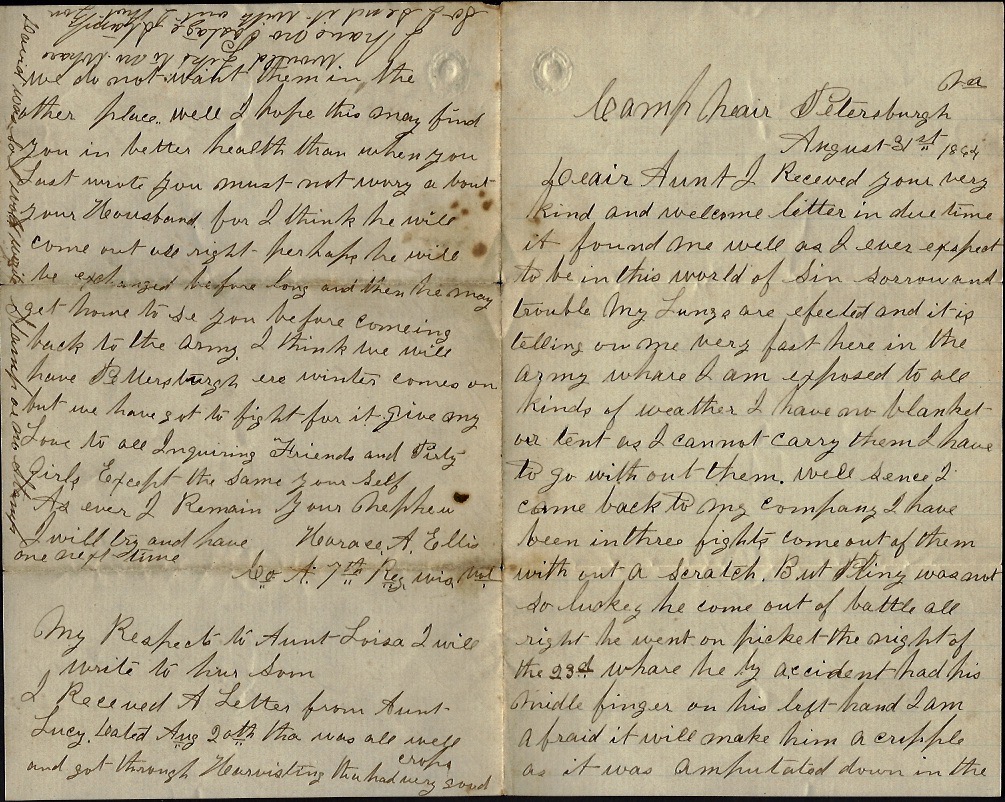 Va
Camp Neair Petersburgh
August 31st 1864
Deair Aunt I Receved your very
kind and welcome letter in due time
it found me well as I ever exspect
to be in this world of sin sorrow and
trouble My Lungs are efected and it is
telling on me very fast here in the
army whare I am exposed to all
kinds of weather I have no blanket
or tent as I cannot carry them I have
to go with out them. well sence I
came back to my company I have
been in three fights come out of them
with out a scratch. But Pliny was not
so luckey he come out of battle all
right he went on picket the night of
the 23d whare he by accident had his
midle finger on his left hand I am
afraid it will make him a cripple
as it was amputated down in the
we do not want them in the
other place.. well I hope this may find
you in better health than when you
Last wrote you must not wory a bout
your Housband for I think he will
come out all right perhaps he will
be exchanged before long and then he may
get home to se you before comeing
back to the army. I think we will
have Pettersburgh ere winter comes on
but we have got to fight for it give my
Love to all Inquiring Friends and Pirty
girls Except the same your self
As ever I Remain Your Nephew
I will try and have Horace A. Ellis
one next time
Co A. 7th Reg wis Vol
My Respects to Aunt Loisa I will
write to hur soon
I Receved A Letter from Aunt
Lucy. Dated Aug 20th tha was all well
and got through Harvisting tha had very good
crops
I have no Postage Stamps
So I send it with out